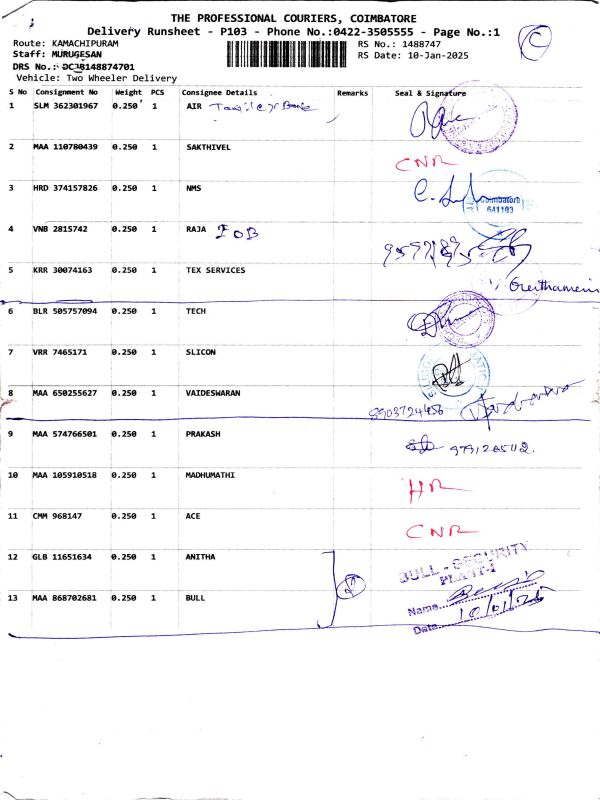 THE PROFESSIONAL COURIERS, COIMBATORE
Delivery Runsheet - P103 - Phone No.:0422-3505555 - Page No.:1
Route: KAMACHIPURAM RS No.: 1488747
Staff: MURUGESAN RS Date: 10-Jan-2025
DRS No.: DCJB148874701
Vehicle: Two Wheeler Delivery
S No Consignment No Weight PCS Consignee Details Remarks Seal & Signature
1 SLM 362301967 0.250 1 AIR
2 MAA 110780439 0.250 1 SAKTHIVEL CNR
3 HRD 374157826 0.250 1 NMS
Coimbatore
641103
4 VNB 2815742 0.250 1 RAJA IOB
5 KRR 30074163 0.250 1 TEX SERVICES
6 BLR 505757094 0.250 1 TECH
7 VRR 7465171 0.250 1 SLICON
8 MAA 650255627 0.250 1 VAIDESWARAN 8903724456
9 MAA 574766501 0.250 1 PRAKASH
10 MAA 105910518 0.250 1 MADHUMATHI HR
11 CMM 968147 0.250 1 ACE CNR
12 GLB 11651634 0.250 1 ANITHA
BULL - SECURITY
PLANT-I
13 MAA 868702681 0.250 1 BULL
Name
Date 10/01/25